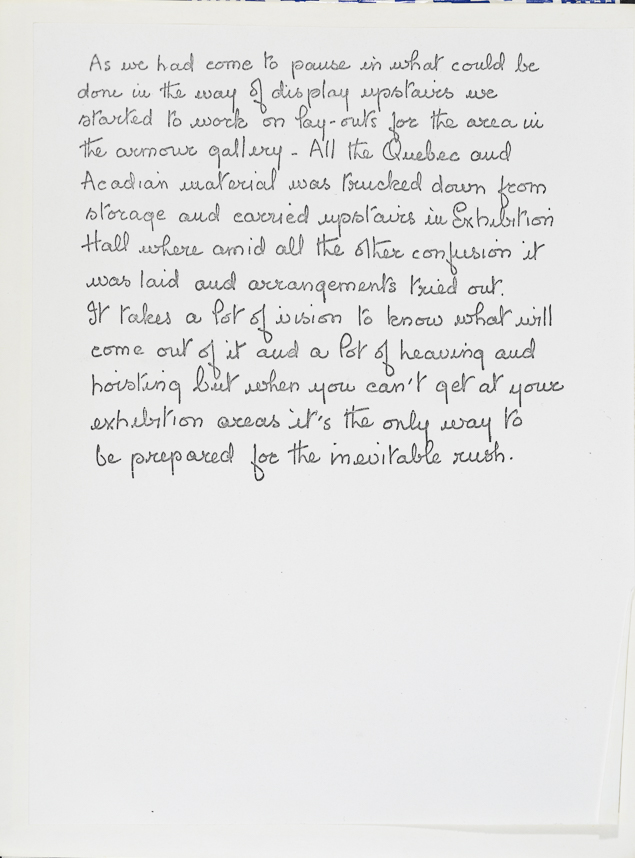 As we had come to pause in what could be
done in the way of display upstairs we
started to work on lay-outs for the area in
the armour gallery - All the Quebec and
Acadian material was trucked down from
storage and carried upstairs in Exhibition
Hall where amid all the other confusion it
was laid and arrangements tried out.
It takes a lot of vision to know what will
come out of it and a lot of heaving and
hoisting but when you can't get at your
exhibition areas it's the only way to
be prepared for the inevitable rush.